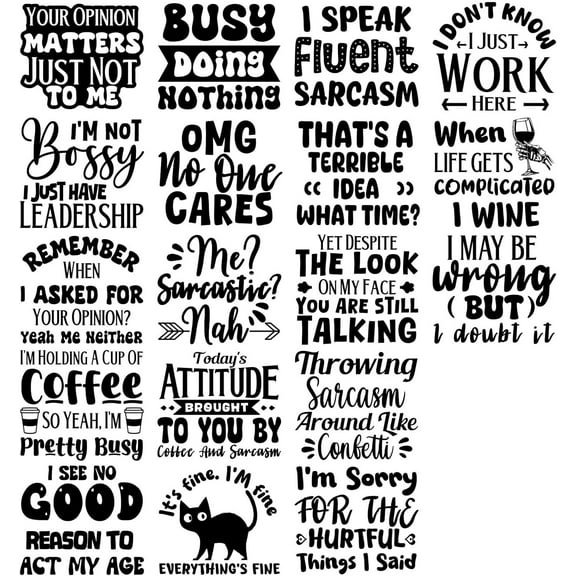 Your Opinion
Matters
Just Not
To Me
Busy
Doing
Nothing
I Speak
Fluent
Sarcasm
I Don't Know
I Just
Work
Here
I'm Not
Bossy
I Just Have
Leadership
OMG
No One
Cares
That's A
Terrible
Idea
What Time?
When
Life Gets
Complicated
I Wine
Remember
When
I Asked For
Your Opinion?
Yeah Me Neither
Me?
Sarcastic?
Nah
Yet Despite
The Look
On My Face
You Are Still
Talking
I May Be
Wrong
(But)
I doubt it
I'm Holding A Cup Of
Coffee
So Yeah, I'm
Pretty Busy
Today's
Attitude
Brought
To You By
Coffee And Sarcasm
Throwing
Sarcasm
Around Like
Confetti
I See No
Good
Reason To
Act My Age
It's fine. I'M fine
Everything's Fine
I'm Sorry
For The
Hurtful
Things I Said